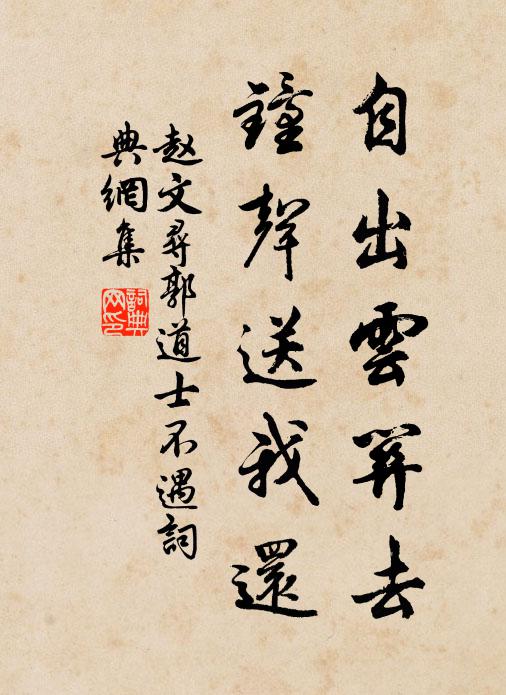 自出雲關去
鐘聲送我還
赵文尋郭道士不遇詞
典網集
詞典
网印